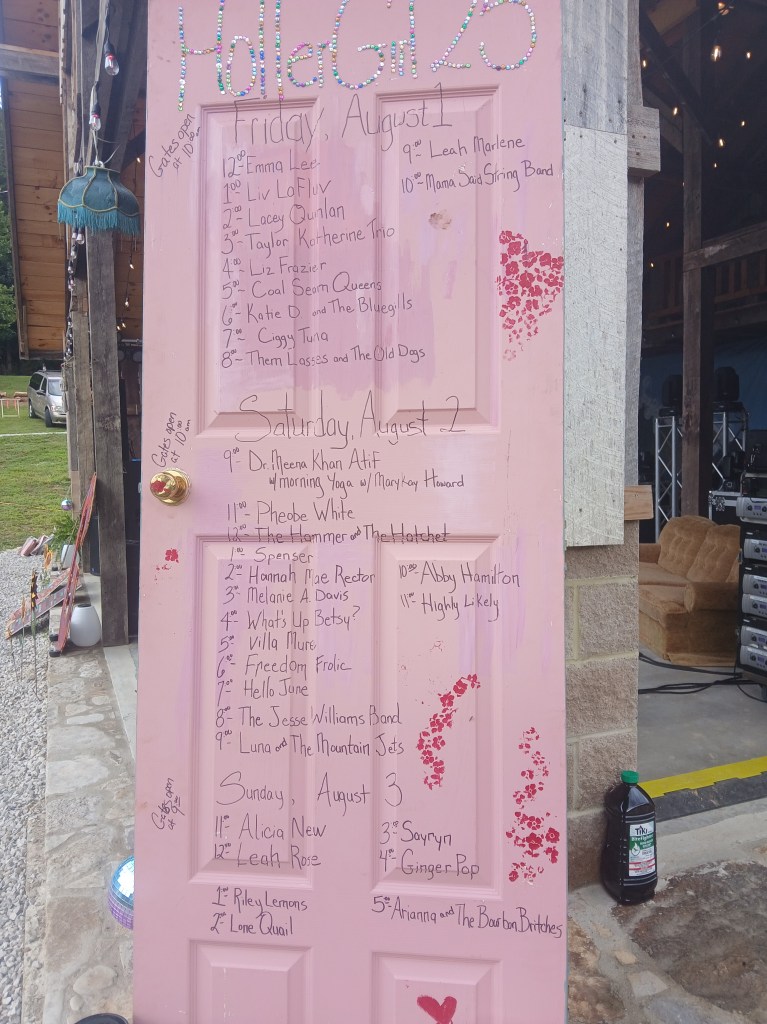 HollerGirl 25
Gates open
at 10:00 am
Friday, August 1
12:00- Emma Lee
1:00- Liv LaFluv
2:00- Lacey Quinlan
3:00- Taylor Katherine Trio
4:00- Liz Frazier
5:00- Coal Seam Queens
6:00- Katie D and The Bluegills
7:00- Ciggy Tuna
8:00- Them Lasses and The Old Dogs
9:00- Leah Marlene
10:00- Mama Said String Band
Gates open
at 10:00 am
Saturday, August 2
9:00- Dr. Meena Khan Atif
w/morning Yoga w/ Marykay Howard
11:00- Pheobe White
12:00- The Hammer and The Hatchet
1:00- Spenser
2:00- Hannah Mae Rector
3:00- Melanie A. Davis
4:00- What's Up Betsy?
5:00- Villa Mure
6:00- Freedom Frolic
7:00- Hello June
8:00- The Jesse Williams Band
9:00- Luna and The Mountain Jets
10:00- Abby Hamilton
11:00- Highly Likely
Gates open
at 9:00
Sunday, August 3
11:00- Alicia New
12:00- Leah Rose
1:00- Riley Lemons
2:00- Lone Quail
3:00- Sayryn
4:00- Ginger Pop
5:00- Arianna and The Bourbon Britches
TIKI